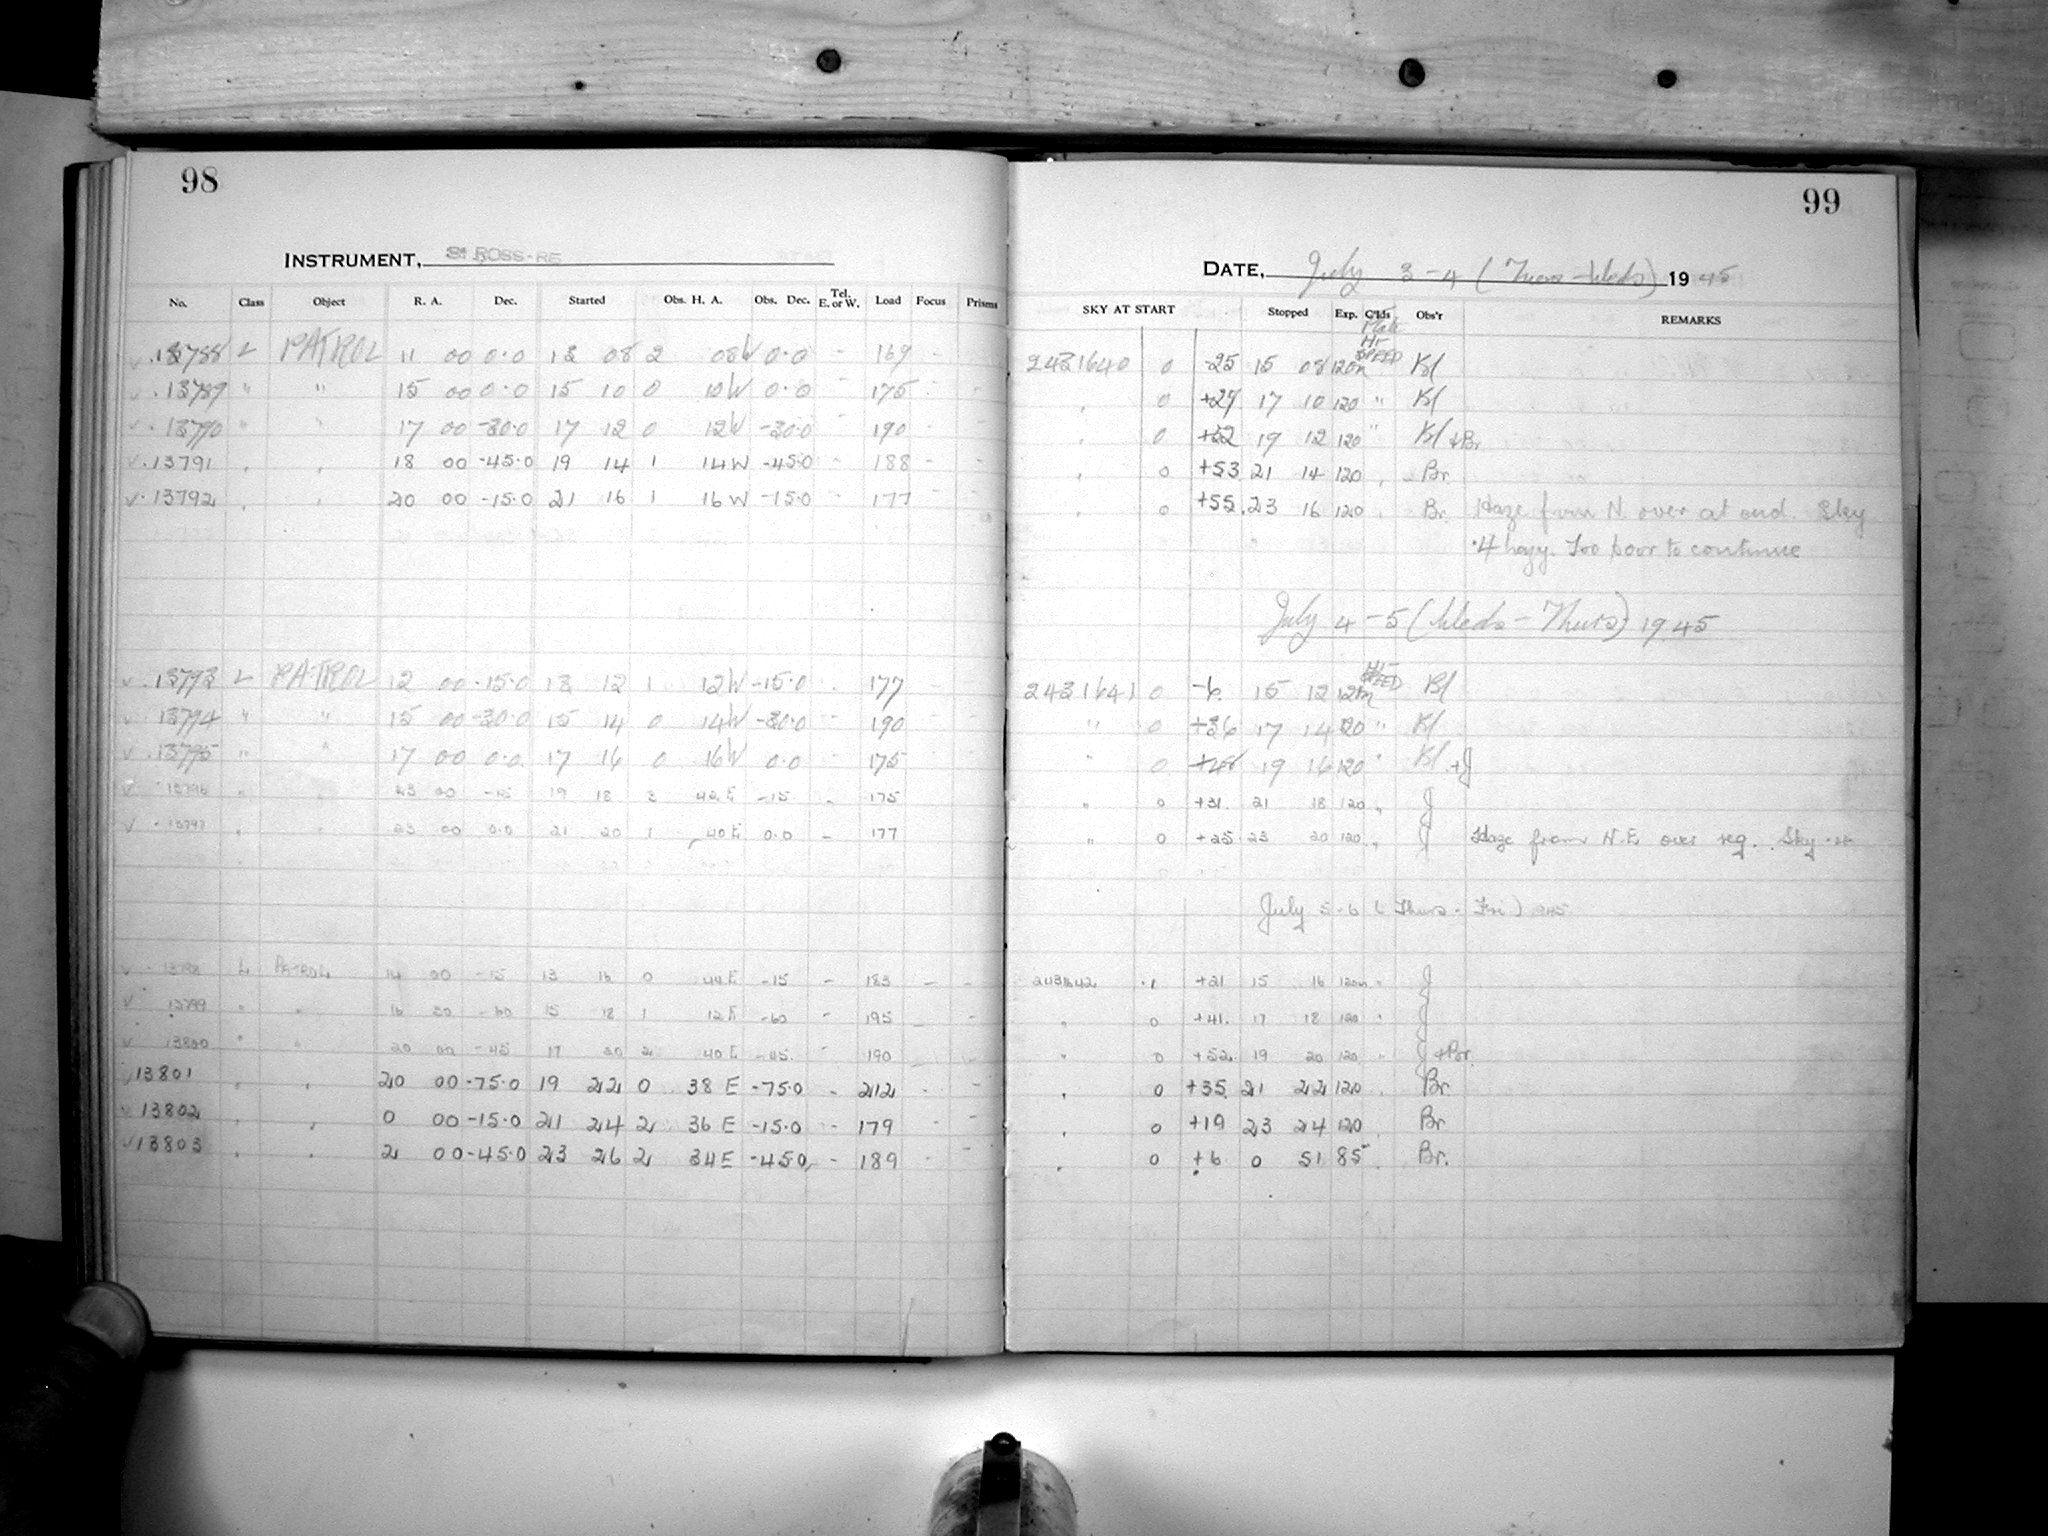 98
INSTRUMENT, ROSS-RE
No. Class Object R. A. Dec. Started Obs. H. A. Obs. Dec. Tel. E. or W. Load Focus Prisms
13788 L PATROL 11 00 0.0 13 08 2 08W 0.0 - 169 -
13789 " " 15 00 0.0 15 10 0 10W 0.0 - 175 - -
13790 " " 17 00 -30.0 17 12 0 12W -30.0 - 190 - -
13791 " " 18 00 -45.0 19 14 1 14W -45.0 - 188 - -
13792 " " 20 00 -15.0 21 16 1 16W -15.0 - 177 - -
13793 L PATROL 12 00 -15.0 13 12 1 12W -15.0 - 177 -
13794 " " 15 00 -30.0 15 14 0 14W -30.0 - 190 -
13795 " " 17 00 0.0 17 16 0 16W 0.0 - 175
13796 " " 23 00 -15 19 18 3 42E -15 - 175
13797 " " 23 00 0.0 21 20 1 40E 0.0 - 177
13798 L PATROL 14 00 -15 13 16 0 44E -15 - 183 - -
13799 " " 16 30 -60 15 18 1 12E -60 - 195 - -
13800 " " 20 00 -45 17 20 2 40E -45 - 190 -
13801 " " 20 00 -75.0 19 22 0 38E -75.0 - 212 - -
13802 " " 0 00 -15.0 21 24 2 36E -15.0 - 179 - -
13803 " " 2 00 -45.0 23 26 2 34E -45.0 - 189 - -
99
DATE, July 3-4 (Tues-Weds) 1945
SKY AT START Stopped Exp. C'lds Obs'r REMARKS
Plate
Hr
SPEED
2431640 0 -25 15 08 120m Kl
" 0 +27 17 10 120 " Kl
" 0 +52 19 12 120 " Kl+Br
" 0 +53 21 14 120 " Br
" 0 +55 23 16 120 " Br. Haze from N. over at end. Sky
.4 hazy. Too poor to continue
July 4-5 (Weds-Thurs) 1945
2431641 0 -6 15 12 12m SPEED Kl
" 0 +36 17 14 120 " Kl
" 0 +48 19 16 120 " Kl+J
" 0 +31 21 18 120 " J
" 0 +25 23 20 120 " J Haze from N.E. over reg. Sky
July 5-6 (Thurs-Fri) 1945
2431642 .1 +21 15 16 120m " J
" 0 +41 17 18 120 " J
" 0 +52 19 20 120 " J+Br
" 0 +35 21 22 120 " Br
" 0 +19 23 24 120 Br
" 0 +6 0 51 85 " Br.